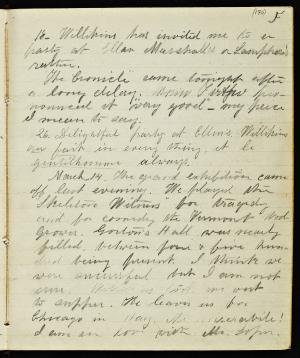 (180) 5
16 Willikins has invited me to a
party at Ellen Marshall's a Lamplin's
rather.
The Cronicle came tonight after
a long delay.
nounced it "very good" – my piece
I mean to say.
26 Delightful party at Ellen's. Willikins
fair in every thing, et le
gentilhomme always.
March 14. The grand exhibition came
off last evening. We played the
Skeleton Witness for tragedy
and for comedy the Vermont Wool
Grower. Gorton's Hall was nearly
filled, between four & five hun-
dred being present. I think we
were successful but I am not
sure. we went
to supper. He leaves us for
Chicago in May.
I am in love with